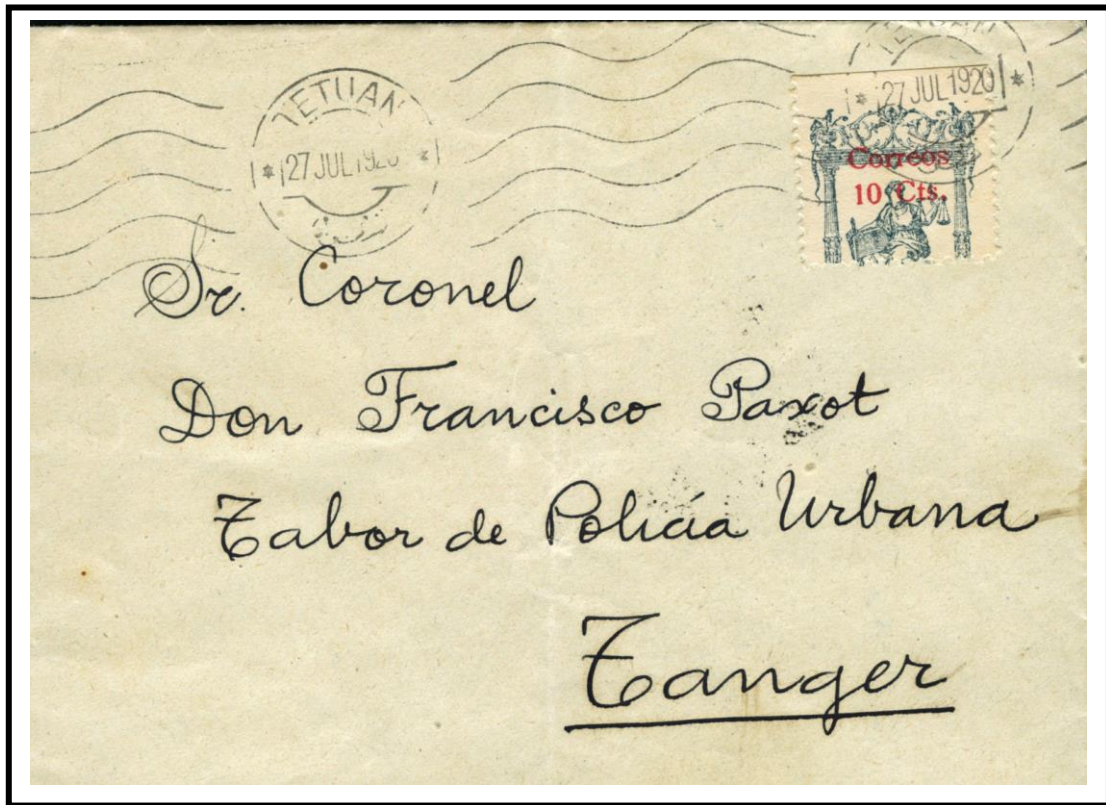 TETUAN
27 JUL 1920
27 JUL 1920
Correos
10 Cts.
Sr. Coronel
Don Francisco Paxot
Tabor de Policía Urbana
Tanger